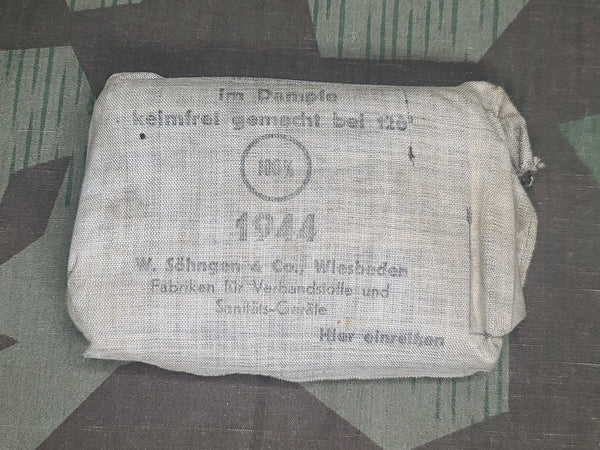 Im Dampfe
keimfrei gemacht bei 120°
100%
1944
W. Söhngen & Co., Wiesbaden
Fabriken für Verbandstoffe und
Sanitäts-Geräte
Hier einreißen